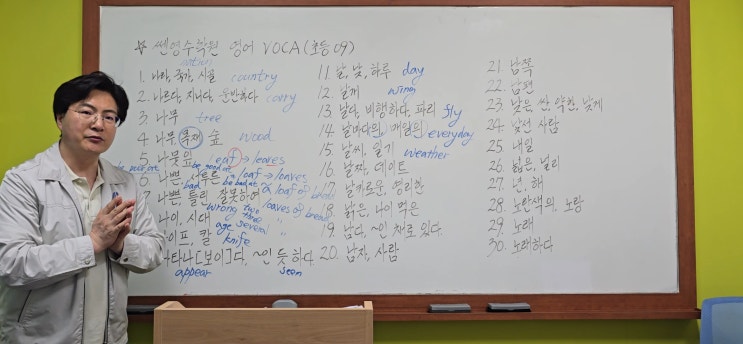 ☆ 쎈영수학원 영어 VOCA (초등 09)
nation
1. 나라, 국가, 시골 country
2. 나르다, 지나다, 운반하다 carry
3. 나무 tree
4. 나무, 목재, 숲 wood
5. 나뭇잎 leaf → leaves
be good at
6. 나쁜, 서투른 loaf → loaves
bad be bad at a loaf of bread
7. 나쁜, 틀린, 잘못하여
wrong two loaves of bread
three
나이, 시대 age several "
이프, 칼 knife
나타나[보이]다, ~인 듯하다
appear seem
11. 날, 낮, 하루 day
12. 날개 wing
13. 날다, 비행하다, 파리 fly
14. 날마다의, 매일의 everyday
15. 날씨, 일기 weather
16. 날짜, 데이트
17. 날카로운, 영리한
18. 낡은, 나이 먹은
19. 남다, ~인 채로 있다
20. 남자, 사람
21. 남쪽
22. 남편
23. 낮은, 싼, 약한, 낮게
24. 낯선 사람
25. 내일
26. 넓은, 널리
27. 년, 해
28. 노란색의, 노랑
29. 노래
30. 노래하다